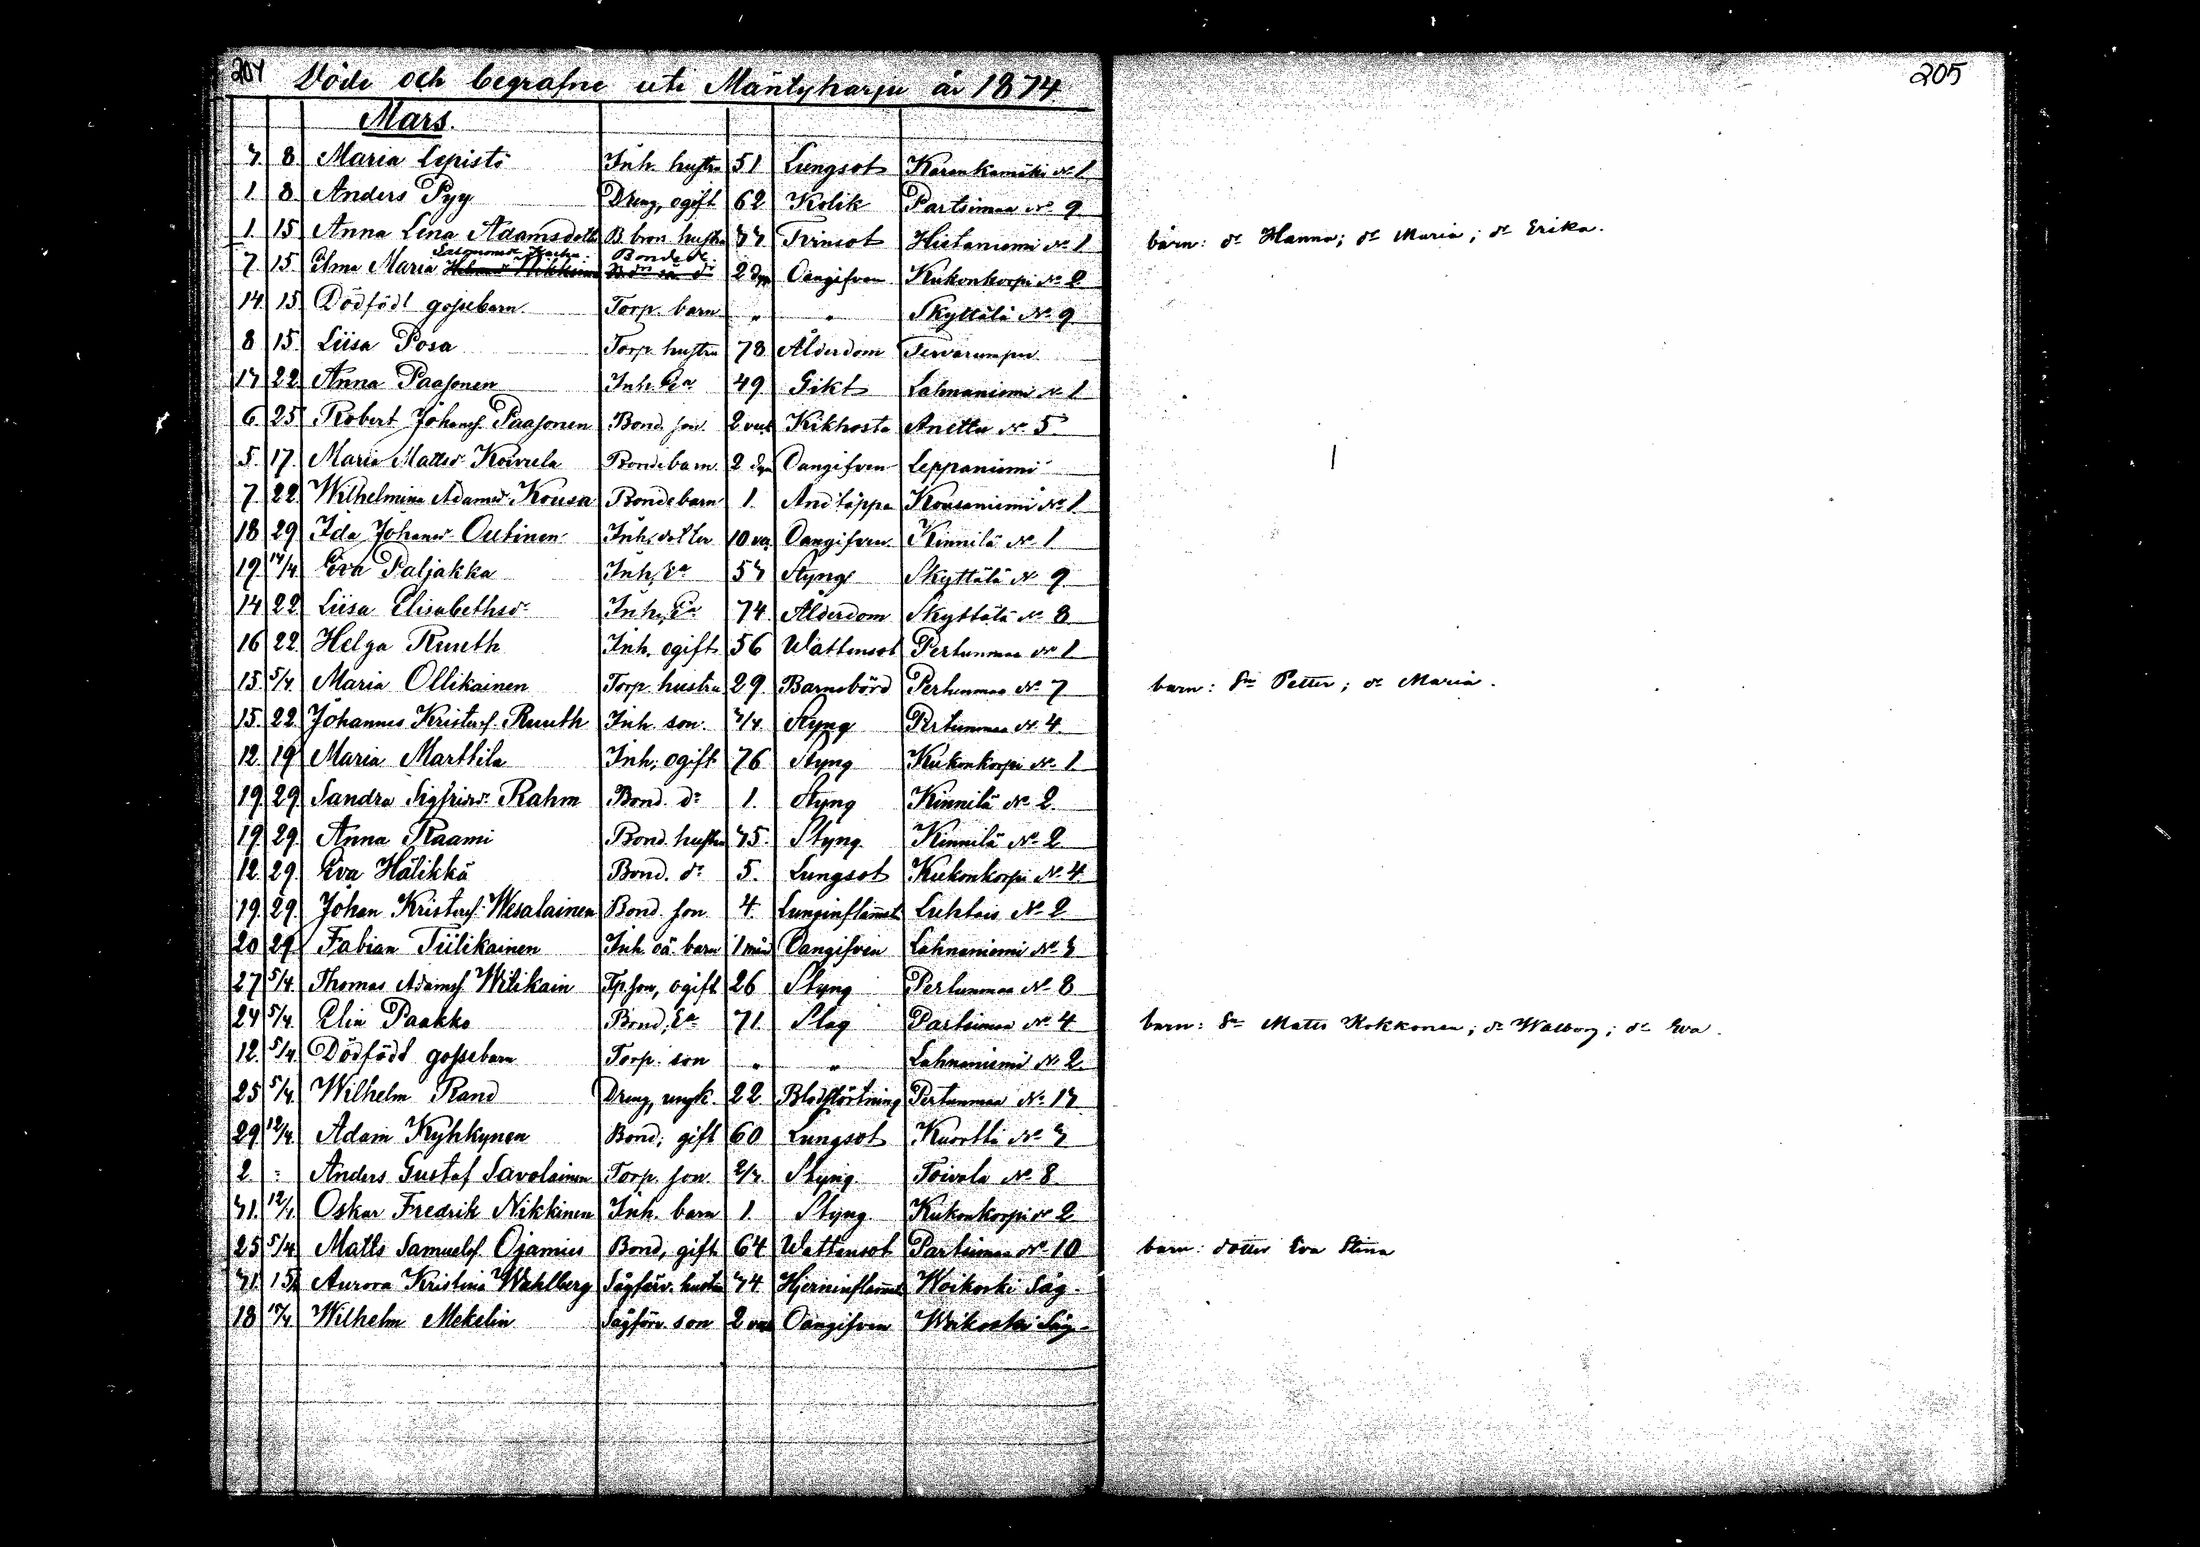 204 Döde och begrafne uti Mäntyharju år 1874.
205
Mars.
3. 8. Maria Lepistö Inh. hustru 51 Lungsot Karankamäki No 1
1. 8. Anders Pyy Dreng, ogift 62 Kolik Partsimaa No 9
1. 15. Anna Lena Adamsdotter B. bron hustru 33 Tvinsot Hietaniemi No 1 barn: dr Hanna; dr Maria; dr Erika.
Bonde dr
7. 15. Alma Maria 2 dgr Oangifven Kukonkorpi No 2
14. 15. Dödfödt gossebarn Torp. barn " " Skyttälä No 9
8 15. Liisa Posa Torp. hustru 78 Ålderdom Tervarumpu
13 22. Anna Paasonen Inh. Ea 49 Gikt Lahnaniemi No 1
6. 25 Robert Johansf. Paasonen Bond. son 2 veck Kikhosta Anetta No 5
5. 17. Maria Mattsdr Koivula Bondebarn 2 dgr Oangifven Leppäniemi
7. 22. Wilhelmina Adamsdr Kousa Bondebarn 1. Andtäppa Kousaniemi No 1
18 29 Ida Johansdr Outinen Inh. dotter 10 vec Oangifven Kinnilä No 1
19. Eva Paljakka Inh. Ea 53 Styng Skyttälä No 9
14 22. Liisa Elisabethsdr Inh. Ea 74. Ålderdom Skyttälä No 8
16 22. Helga Ruuth Inh. ogift 56 Wattensot Pertunmaa No 1
15. 5/4. Maria Ollikainen Torp. hustru 29. Barnsbörd Pertunmaa No 7 barn: Sn Petter; dr Maria.
15. 22. Johannes Kristersf. Ruuth Inh. son 3/4. Styng Pertunmaa No 4
12. 19. Maria Marttila Inh; ogift 76 Styng Kukonkorpi No 1
19. 29. Sandra Sigfridsdr Rahm Bond. dr 1. Styng Kinnilä No 2.
19. 29. Anna Raami Bond. hustru 35. Styng Kinnilä No 2
12. 29. Eva Hälikkä Bond. dr 5. Lungsot Kukonkorpi No 4
19. 29. Johan Kristersf. Wesalainen Bond. son 4. Lunginflamat. No 2
20 29. Fabian Tiilikainen Inh. oä. barn 1 mån Oangifven Lahnaniemi No 3
27 5/4. Thomas Adamsf. Wilikain Tp son, ogift 26 Styng Pertunmaa No 8
24 5/4. Elin Paakko Bond; Ea 71. Slag Partsimaa No 4 barn: Sn Matts Kokkonen; dr Walborg; dr Eva.
12. 5/4. Dödfödt gossebarn Torp. son " " Lahnaniemi No 2.
25 5/4. Wilhelm Rand Dreng, ungk. 22. Blodstörtning Pertunmaa No 13
29 12/4. Adam Kyhkynen Bond; gift 60 Lungsot Kuortti No 3
2. " Anders Gustaf Savolainen Torp. son 2/3. Styng Toivola No 8
31. 12/4. Oskar Fredrik Nikkinen Inh. barn 1. Styng Kukonkorpi No 2
25 5/4. Matts Samuelsf. Ojamies Bond, gift 64 Wattensot Partsimaa No 10 barn: dotter Eva Stina
31. Aurora Kristina Wahlberg Sågförv. hustru 34. Hjerninflamat Woikoski Såg.
18 Wilhelm Mekelin Sågförv. son 2 vec Oangifven Woikoski Såg.